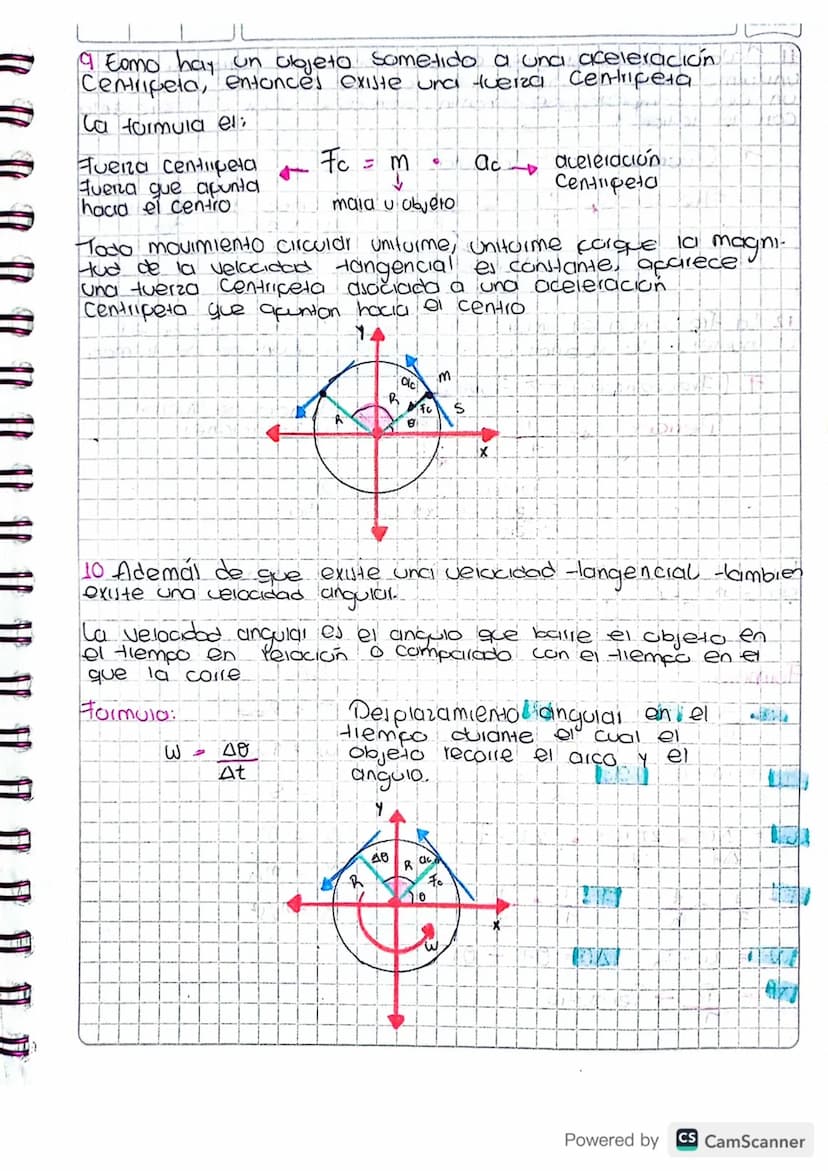 9 Como hay un objeto sometido a una aceleración
Centripeta, entonces existe una fuerza centripeta
La formula es:
Fuerza centripeta
fuerza que apunta
hacia el centro
Fc = m · ac
masa u objeto
aceleración
Centripeta
Todo movimiento circular uniforme, uniforme porque la magni-
tud de la velocidad tangencial es constante, aparece
una fuerza centripeta asociada a una aceleración
Centripeta que apuntan hacia el centro
y
ac
m
R
Fc
S
R
θ
x
10 Además de que existe una velocidad tangencial tambien
existe una velocidad angular.
La velocidad angular es el angulo que barre el objeto en
el tiempo en relación o comparado con el tiempo en el
que la corre
Formula:
W = Δθ
Δt
Desplazamiento angular en el
tiempo durante el cual el
objeto recorre el arco y el
angulo.
y
Δθ
R
ac
R
Fc
θ
x
W
Powered by CS CamScanner